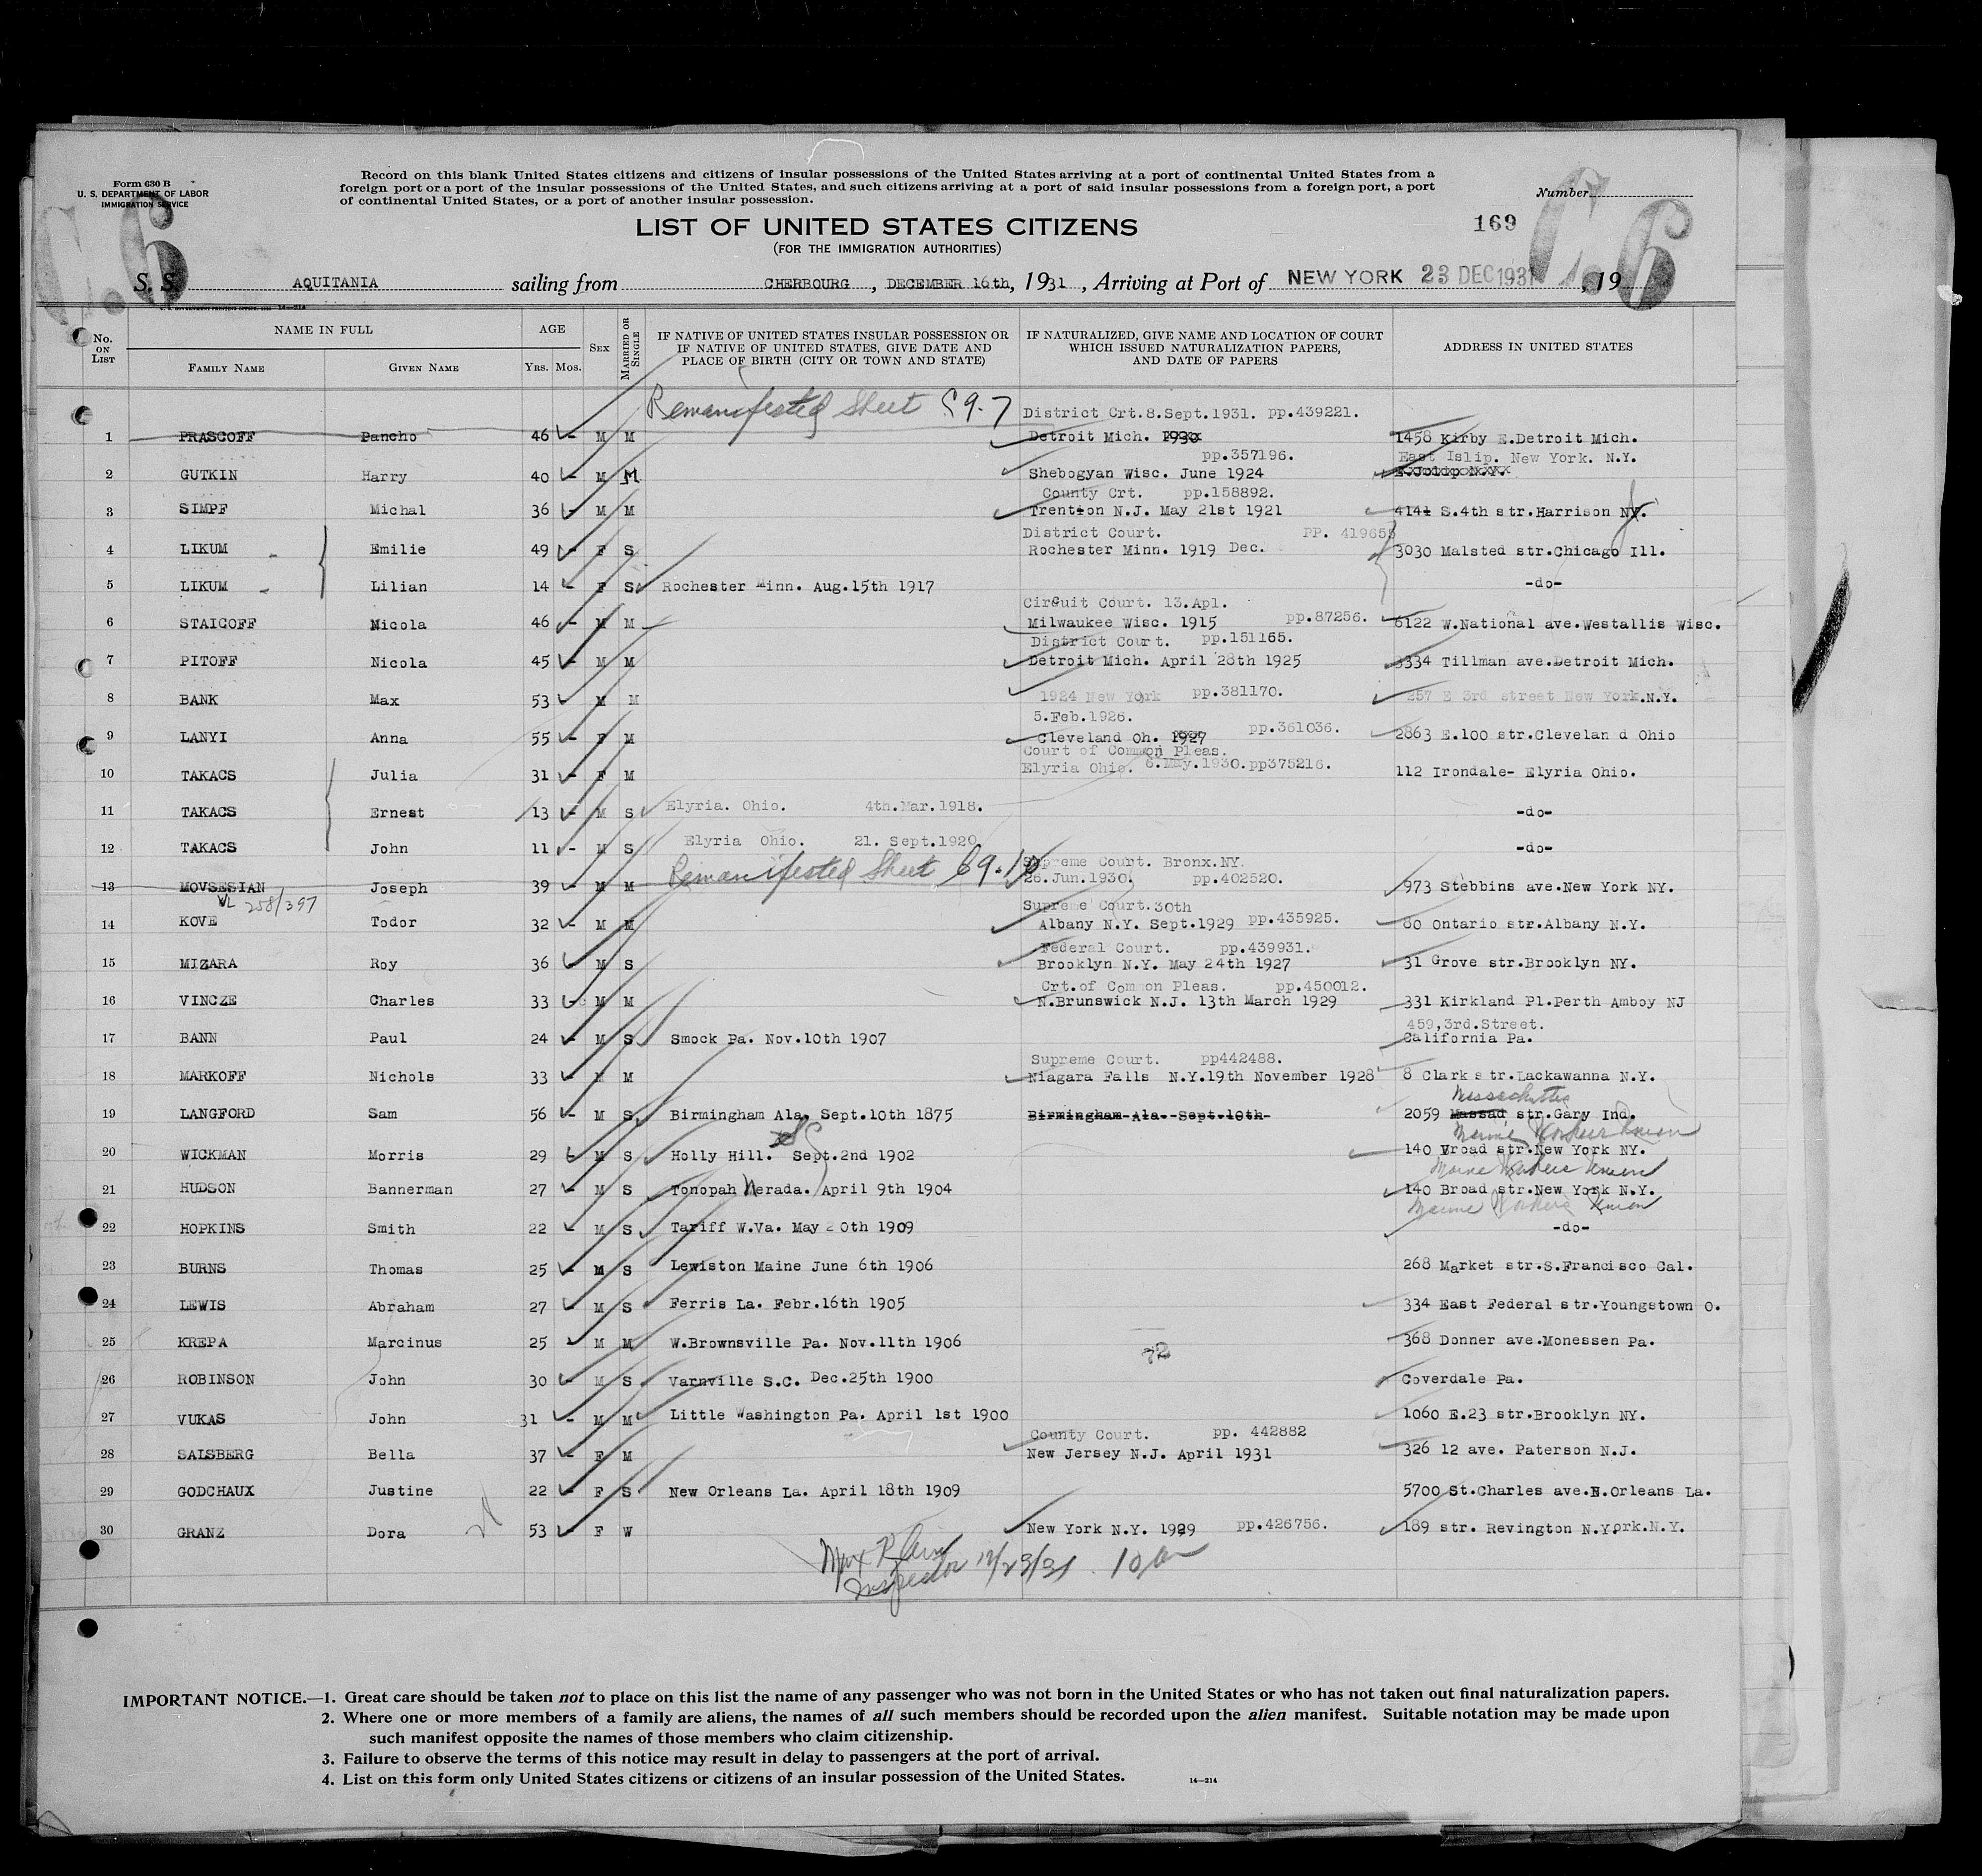 Form 630 B
U. S. DEPARTMENT OF LABOR
IMMIGRATION SERVICE
Record on this blank United States citizens and citizens of insular possessions of the United States arriving at a port of continental United States from a
foreign port or a port of the insular possessions of the United States, and such citizens arriving at a port of said insular possessions from a foreign port, a port
of continental United States, or a port of another insular possession.
Number
LIST OF UNITED STATES CITIZENS
169
(FOR THE IMMIGRATION AUTHORITIES)
S. S. AQUITANIA sailing from CHERBOURG , DECEMBER 16th, 1931 , Arriving at Port of NEW YORK 23 DEC 1931 , 19
No. ON LIST NAME IN FULL FAMILY NAME GIVEN NAME AGE Yrs. Mos. SEX MARRIED OR SINGLE IF NATIVE OF UNITED STATES INSULAR POSSESSION OR IF NATIVE OF UNITED STATES, GIVE DATE AND PLACE OF BIRTH (CITY OR TOWN AND STATE) IF NATURALIZED, GIVE NAME AND LOCATION OF COURT WHICH ISSUED NATURALIZATION PAPERS, AND DATE OF PAPERS ADDRESS IN UNITED STATES
Remanifested Sheet 9-7 District Crt.8.Sept.1931. pp.439221.
1 PRASCOFF Pancho 46 - M M Detroit Mich. 1930 1458 Kirby E.Detroit Mich.
pp.357196. East Islip. New York. N.Y.
2 GUTKIN Harry 40 - M M Shebogyan Wisc. June 1924
County Crt. pp.158892.
3 SIMPF Michal 36 - M M Trention N.J. May 21st 1921 4141 S.4th str.Harrison NY.
District Court. PP. 419655
4 LIKUM - Emilie 49 - F S Rochester Minn. 1919 Dec. 3030 Malsted str.Chicago Ill.
5 LIKUM - Lilian 14 - F S Rochester Minn. Aug.15th 1917 -do-
Circuit Court. 13.Apl.
6 STAICOFF Nicola 46 - M M Milwaukee Wisc. 1915 pp.87256. 6122 W.National ave.Westallis Wisc.
District Court. pp.151165.
7 PITOFF Nicola 45 - M M Detroit Mich. April 28th 1925 3334 Tillman ave.Detroit Mich.
8 BANK Max 53 - M M 1924 New York pp.381170. 257 E 3rd street New York.N.Y.
5.Feb.1926.
9 LANYI Anna 55 - F M Cleveland Oh. 1927 pp.361036. 2863 E.100 str.Clevelan d Ohio
Court of Common Pleas.
10 TAKACS Julia 31 - F M Elyria Ohio. 6.May.1930.pp375216. 112 Irondale- Elyria Ohio.
11 TAKACS Ernest 13 - M S Elyria. Ohio. 4th.Mar.1918. -do-
12 TAKACS John 11 - M S Elyria Ohio. 21. Sept.1920 -do-
Remanifested Sheet 69-10 Supreme Court. Bronx.NY.
13 MOVSESIAN Joseph 39 - M M 26.Jun.1930. pp.402520. 973 Stebbins ave.New York NY.
VL 258/397 Supreme Court.30th
14 KOVE Todor 32 - M M Albany N.Y. Sept.1929 pp.435925. 60 Ontario str.Albany N.Y.
Federal Court. pp.439931.
15 MIZARA Roy 36 - M S Brooklyn N.Y. May 24th 1927 31 Grove str.Brooklyn NY.
Crt.of Common Pleas. pp.450012.
16 VINCZE Charles 33 - M M N.Brunswick N.J. 13th March 1929 331 Kirkland Pl.Perth Amboy NJ
459,3rd.Street.
17 BANN Paul 24 - M S Smock Pa. Nov.10th 1907 California Pa.
Supreme Court. pp442488.
18 MARKOFF Nichols 33 - M M Niagara Falls N.Y.19th November 1928 8 Clark str.Lackawanna N.Y.
19 LANGFORD Sam 56 - M S Birmingham Ala. Sept.10th 1875 Birmingham Ala. Sept.10th 2059 Massad str.Gary Ind.
Marine Workers Union
20 WICKMAN Morris 29 - M S Holly Hill. SC Sept.2nd 1902 140 Vroad str.New York NY.
Marine Workers Union
21 HUDSON Bannerman 27 - M S Tonopah Nerada. April 9th 1904 140 Broad str.New York N.Y.
Marine Workers Union
22 HOPKINS Smith 22 - M S Tariff W.Va. May 20th 1909 -do-
23 BURNS Thomas 25 - M S Lewiston Maine June 6th 1906 268 Market str.S.Francisco Cal.
24 LEWIS Abraham 27 - M S Ferris La. Febr.16th 1905 334 East Federal str.Youngstown O.
25 KREPA Marcinus 25 M M W.Brownsville Pa. Nov.11th 1906 72 368 Donner ave.Monessen Pa.
26 ROBINSON John 30 - M S Varnville S.C. Dec.25th 1900 Coverdale Pa.
27 VUKAS John 31 - M M Little Washington Pa. April 1st 1900 1060 E.23 str.Brooklyn NY.
County Court. pp. 442882
28 SALSBERG Bella 37 - F M New Jersey N.J. April 1931 326 12 ave. Paterson N.J.
29 GODCHAUX Justine 22 - F S New Orleans La. April 18th 1909 5700 St.Charles ave.N.Orleans La.
30 GRANZ Dora 53 - F W New York N.Y. 1929 pp.426756. 189 str. Revington N.Y.ork.N.Y.
Inspector 12/23/31
IMPORTANT NOTICE.—1. Great care should be taken not to place on this list the name of any passenger who was not born in the United States or who has not taken out final naturalization papers.
2. Where one or more members of a family are aliens, the names of all such members should be recorded upon the alien manifest. Suitable notation may be made upon
such manifest opposite the names of those members who claim citizenship.
3. Failure to observe the terms of this notice may result in delay to passengers at the port of arrival.
4. List on this form only United States citizens or citizens of an insular possession of the United States.
14—214